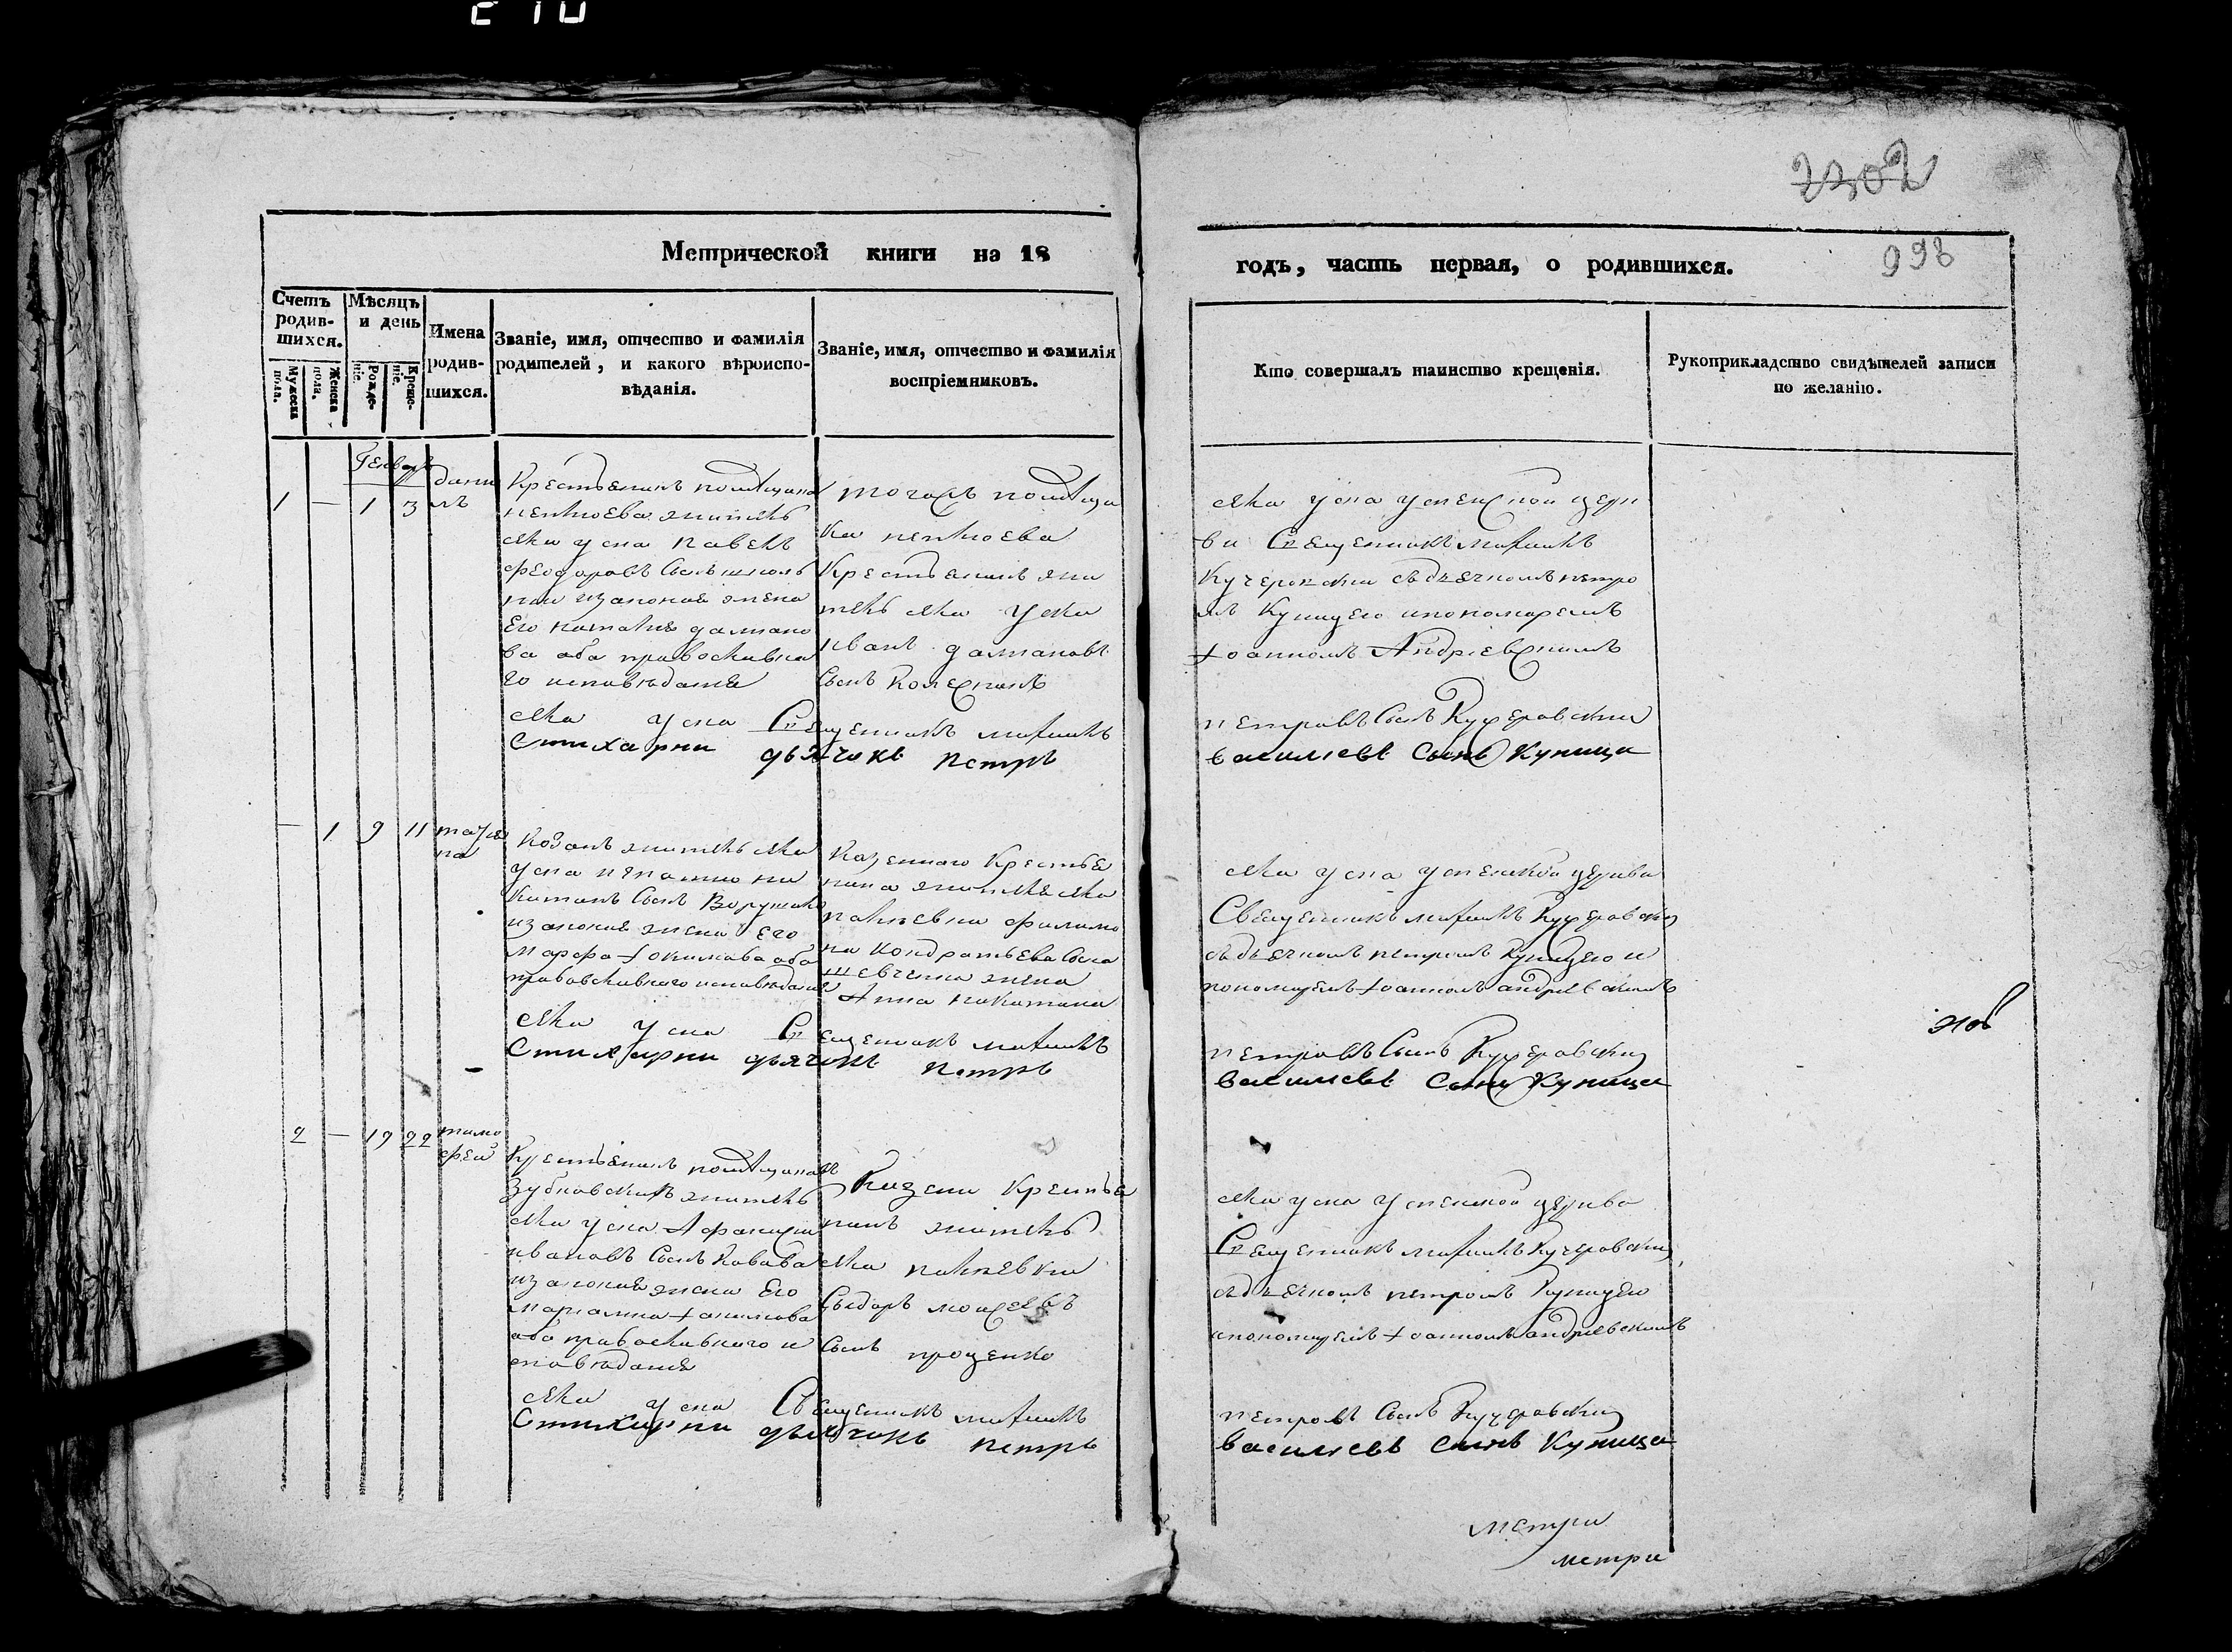 2302
Метрической книги на 18
годъ, часть первая, о родившихся.
998
Счетъ родив-шихся.
Мужеска пола.
Женска пола.
Мѣсяцъ и день
Рожде-ніе.
Креще-ніе.
Имена родив-шихся.
Званіе, имя, отчество и фамилія
родителей, и какого вѣроиспо-
вѣданія.
Званіе, имя, отчество и фамилія
воспріемниковъ.
Кто совершалъ таинство крещенія.
Рукоприкладство свидѣтелей записи
по желанію.
Генварь
1 — 1 3
дани
лъ
Крестьянинъ помѣщика
житель
села уска павелъ
феодоровъ сынъ
изаконая жена
Его наталия дамано
ва оба православна
го исповѣдания
тогожъ помѣщи
ка
Крестьянинъ жи
тель села уска
иванъ дамановъ
сынъ
села уска успенской церк
ви Священникъ михаилъ
Кучеровски съ дьячкомъ петро
мъ Куницею ипономаремъ
Iоанномъ Андрiевскимъ
села уска Священникъ михаилъ
петровъ сынъ Кучеровски
Стихарни дьячокъ петръ
василиевъ сынъ Куница
— 1 9 11
татья
на
Козакъ житель села
уска игнатии ни
китинъ сынъ
изаконая жена Его
марфа Iокимова оба
православного исповѣдания
Казенного Крестья
нина жителя села
филимо
на Кондратьева сына
шевченка жена
Анна никитина
села уска успенской церкви
Священникъ михаилъ Кучеровски
съ дьячкомъ петромъ Куницею и
пономаремъ Iоанномъ андрiевскимъ
села уска Священникъ михаилъ
петровъ сынъ Кучеровски
Стихарни дьячокъ петръ
василиевъ сынъ Куница
2 — 19 22
тимо
фей
Крестьянинъ помѣщиковъ
Зубковскихъ житель
села уска Афанаси
ивановъ сынъ
изаконая жена Его
мариамна Iокимова
оба православного и
споведания
Казени Крестья
нинъ житель
села
Сыдоръ моисеевъ
сынъ проценко
села уска успенской церкви
Священникъ михаилъ Кучеровски
съ дьячкомъ петромъ Куницею
ипономаремъ Iоанномъ андрiевскимъ
села уска Священникъ михаилъ
петровъ сынъ Кучеровски
Стихарни дьячокъ петръ
василиевъ сынъ Куница
метри
метри